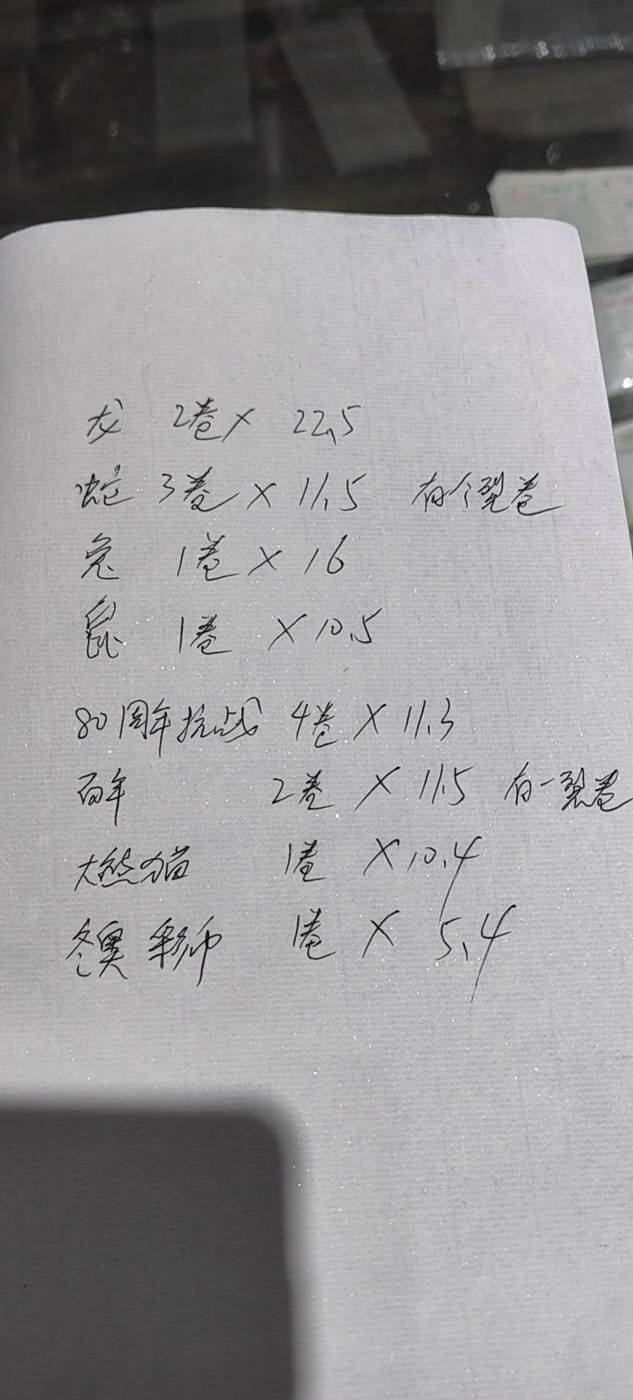 龙 2卷 × 22.5
蛇 3卷 × 11.5 有个裂卷
兔 1卷 × 16
鼠 1卷 × 10.5
80周年抗战 4卷 × 11.3
百年 2卷 × 11.5 有一裂卷
大熊猫 1卷 × 10.4
冬奥 彩币 1卷 × 5.4